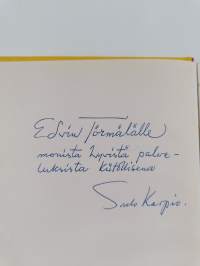 Edvin Törmälälle
monista hyvistä palve-
luksista kiitollisena
Karpio.